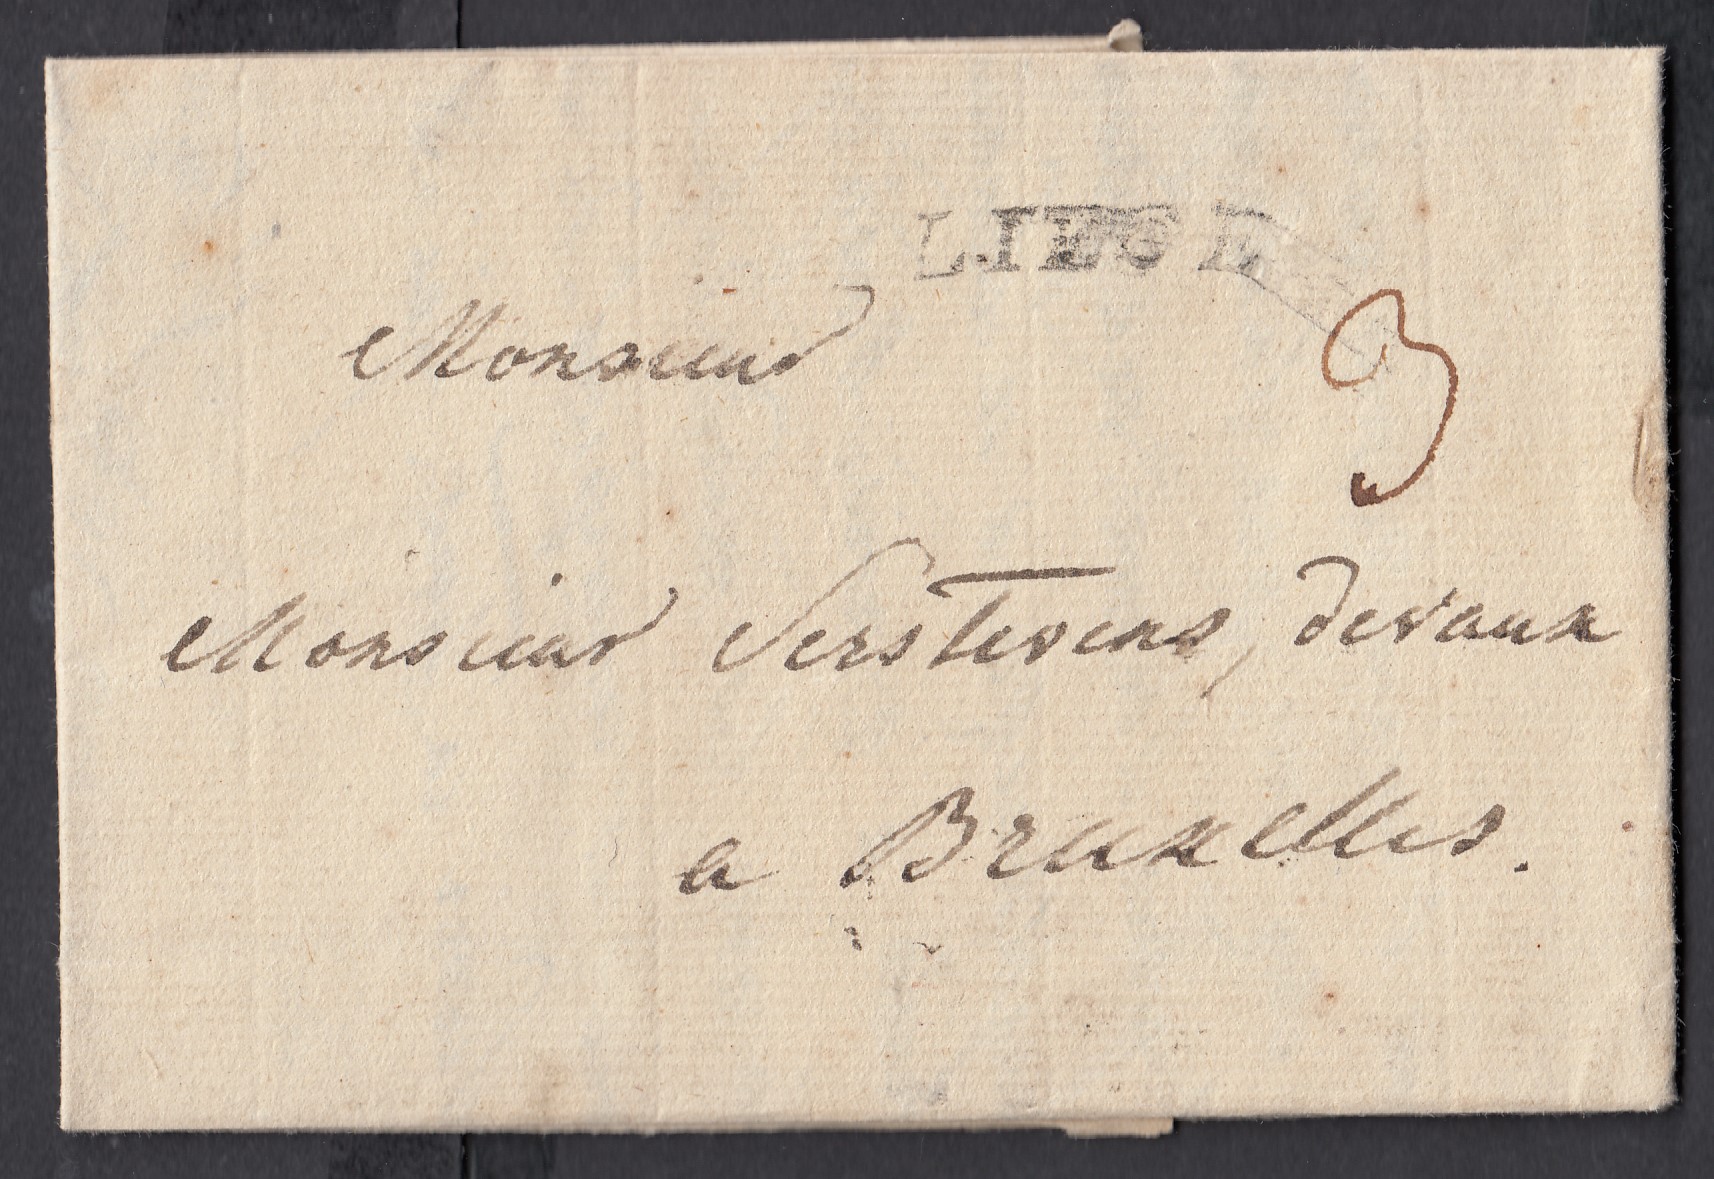 LIEGE
3
Monsieur
Monsieur Verstevens, devaux
a Bruxelles.